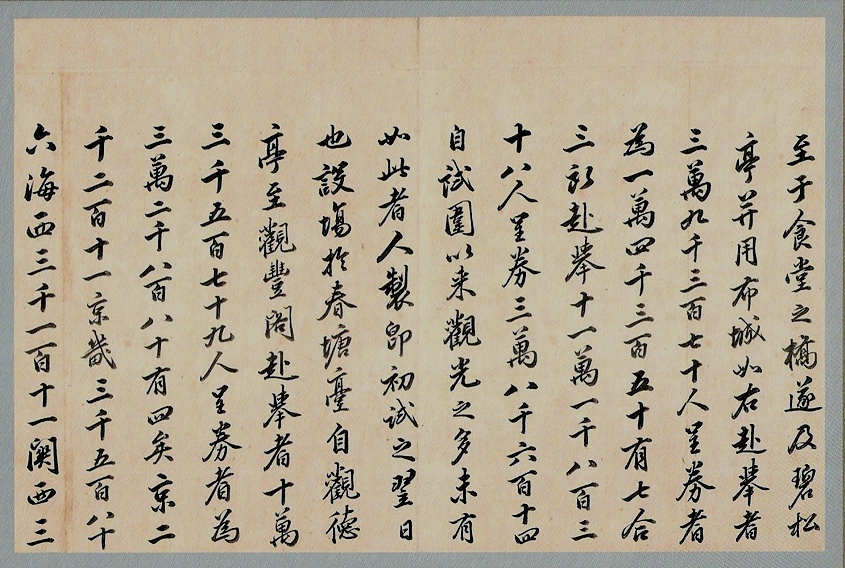 至于食堂之橋遂及碧松
亭並用布城如右赴擧者
三萬九千三百七十人呈券者
為一萬四千三百五十有七合
三所赴擧十一萬一千八百三
十八人呈券三萬八千六百十四
自試圍以来觀光之多未有
如此者人製即初試之翌日
也設場於春塘臺自觀德
亭至觀豐閣赴擧者十萬
三千五百七十九人呈券者為
三萬二千八百八十有四矣京二
千二百十一京畿三千五百八十
六海西三千一百十一關西三